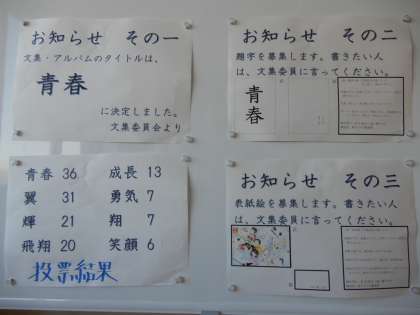 お知らせ その一
文集・アルバムのタイトルは、
青春
に決定しました。
文集委員会より
お知らせ その二
題字を募集します。書きたい人
は、文集委員に言ってください。
青春
青春 36 成長 13
翼 31 勇気 7
輝 21 翔 7
飛翔 20 笑顔 6
投票結果
お知らせ その三
表紙絵を募集します。書きたい人
は、文集委員に言ってください。